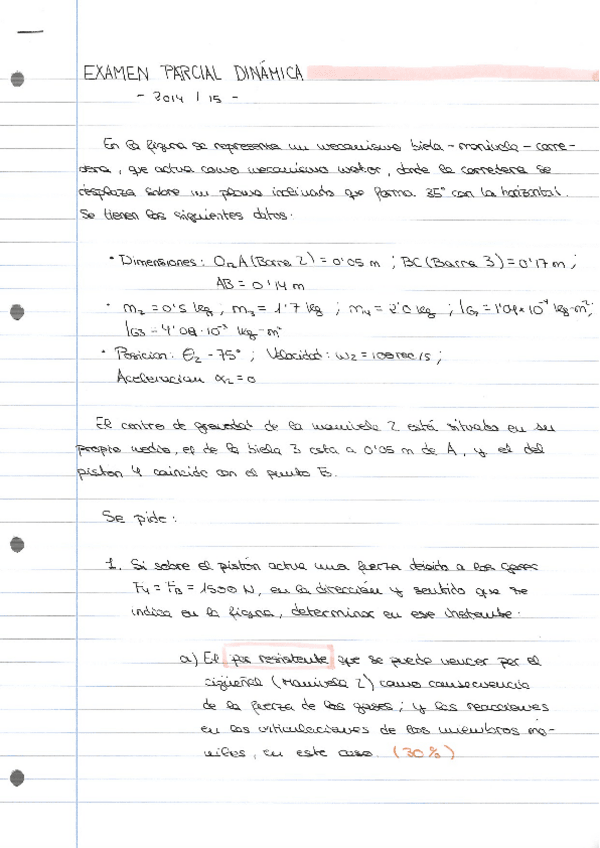 EXAMEN PARCIAL DINÁMICA
- 2014 / 15 -
En la figura se representa un mecanismo biela-manivela-corre-
dera, que actua como mecanismo motor, donde la corredera se
desplaza sobre un plano inclinado que forma 35° con la horizontal.
Se tienen los siguientes datos:
· Dimensiones: O₂A (Barra 2) = 0'05 m ; BC (Barra 3) = 0'17 m ;
AB = 0'14 m
· m₂ = 0'5 kg ; m₃ = 1'7 kg ; m₄ = 2'0 kg ; IG₂ = kg·m² ;
IG3 = 4'08·10⁻³ kg·m²
· Posicion: θ₂ - 75° ; Velocidad: ω₂ = 100 rad/s ;
Aceleracion α₂ = 0
El centro de gravedad de la manivela 2 está situado en su
propio medio, el de la biela 3 esta a 0'05 m de A, y el del
piston 4 coincide con el punto B.
Se pide:
1. Si sobre el pistón actua una fuerza debido a los gases
F₄ = F_B = 1500 N, en la dirección y sentido que se
indica en la figura, determinar en ese instante:
a) El par resistente que se puede vencer por el
cigüeñal (Manivela 2) como consecuencia
de la fuerza de los gases; y las reacciones
en las articulaciones de los miembros mo-
viles, en este caso. (30%)